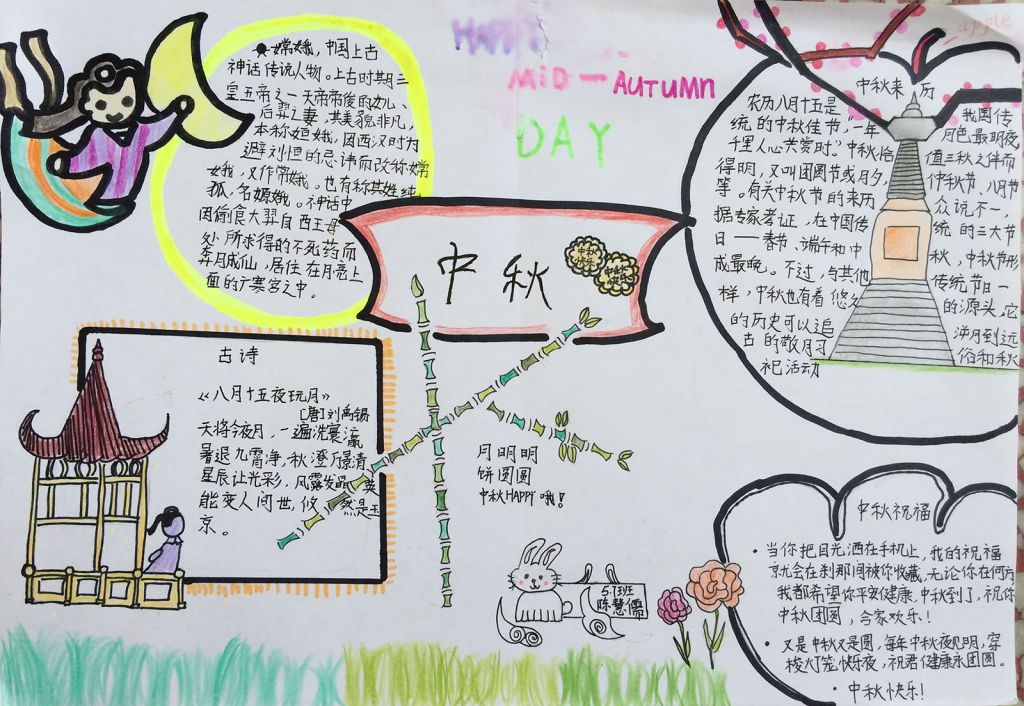 HAPPY
MiD-AUTUMn
DAY
apple
中秋
中秋
快乐
中秋
嫦娥,中国上古
神话传说人物。上古时期三
皇五帝之一天帝帝俊的女儿、
后羿之妻,其美貌非凡,
本称姮娥,因西汉时为
避刘恒的忌讳而改称嫦
娥,又作常娥。也有称其姓纯
狐,名嫄娥。神话中
因偷食大羿自西王母
处所求得的不死药而
奔月成仙,居住在月亮上
面的广寒宫之中。
中秋来历
农历八月十五是 我国传
统的中秋佳节"一年 月色最明夜
千里人心共赏时。"中秋恰 值三秋之伴而
得明,又叫团圆节或月夕, 仲秋节、八月节
等。有关中秋节的来历 众说不一,
据专家考证,在中国传 统的三大节
日——春节、端午和中 秋,中秋节形
成最晚。不过,与其他 传统节日一
样,中秋也有着悠久 的源头,它
的历史可以追 溯到远
古的敬月习 俗和秋
祀活动
古诗
《八月十五夜玩月》
[唐]刘禹锡
天将今夜月,一遍洗寰瀛
暑退九霄净,秋澄万景清
星辰让光彩,风露发晶英
能变人间世,攸然是玉
京。
月明明
饼圆圆
中秋HAPPY哦!
5.7班
陈慧儒
中秋祝福
·当你把目光洒在手机上,我的祝福
就会在刹那间被你收藏,无论你在何方
我都希望你平安健康,中秋到了,祝你
中秋团圆,合家欢乐!
·又是中秋又是圆,每年中秋夜明,穿
梭灯笼快乐夜,祝君健康永团圆。
·中秋快乐!